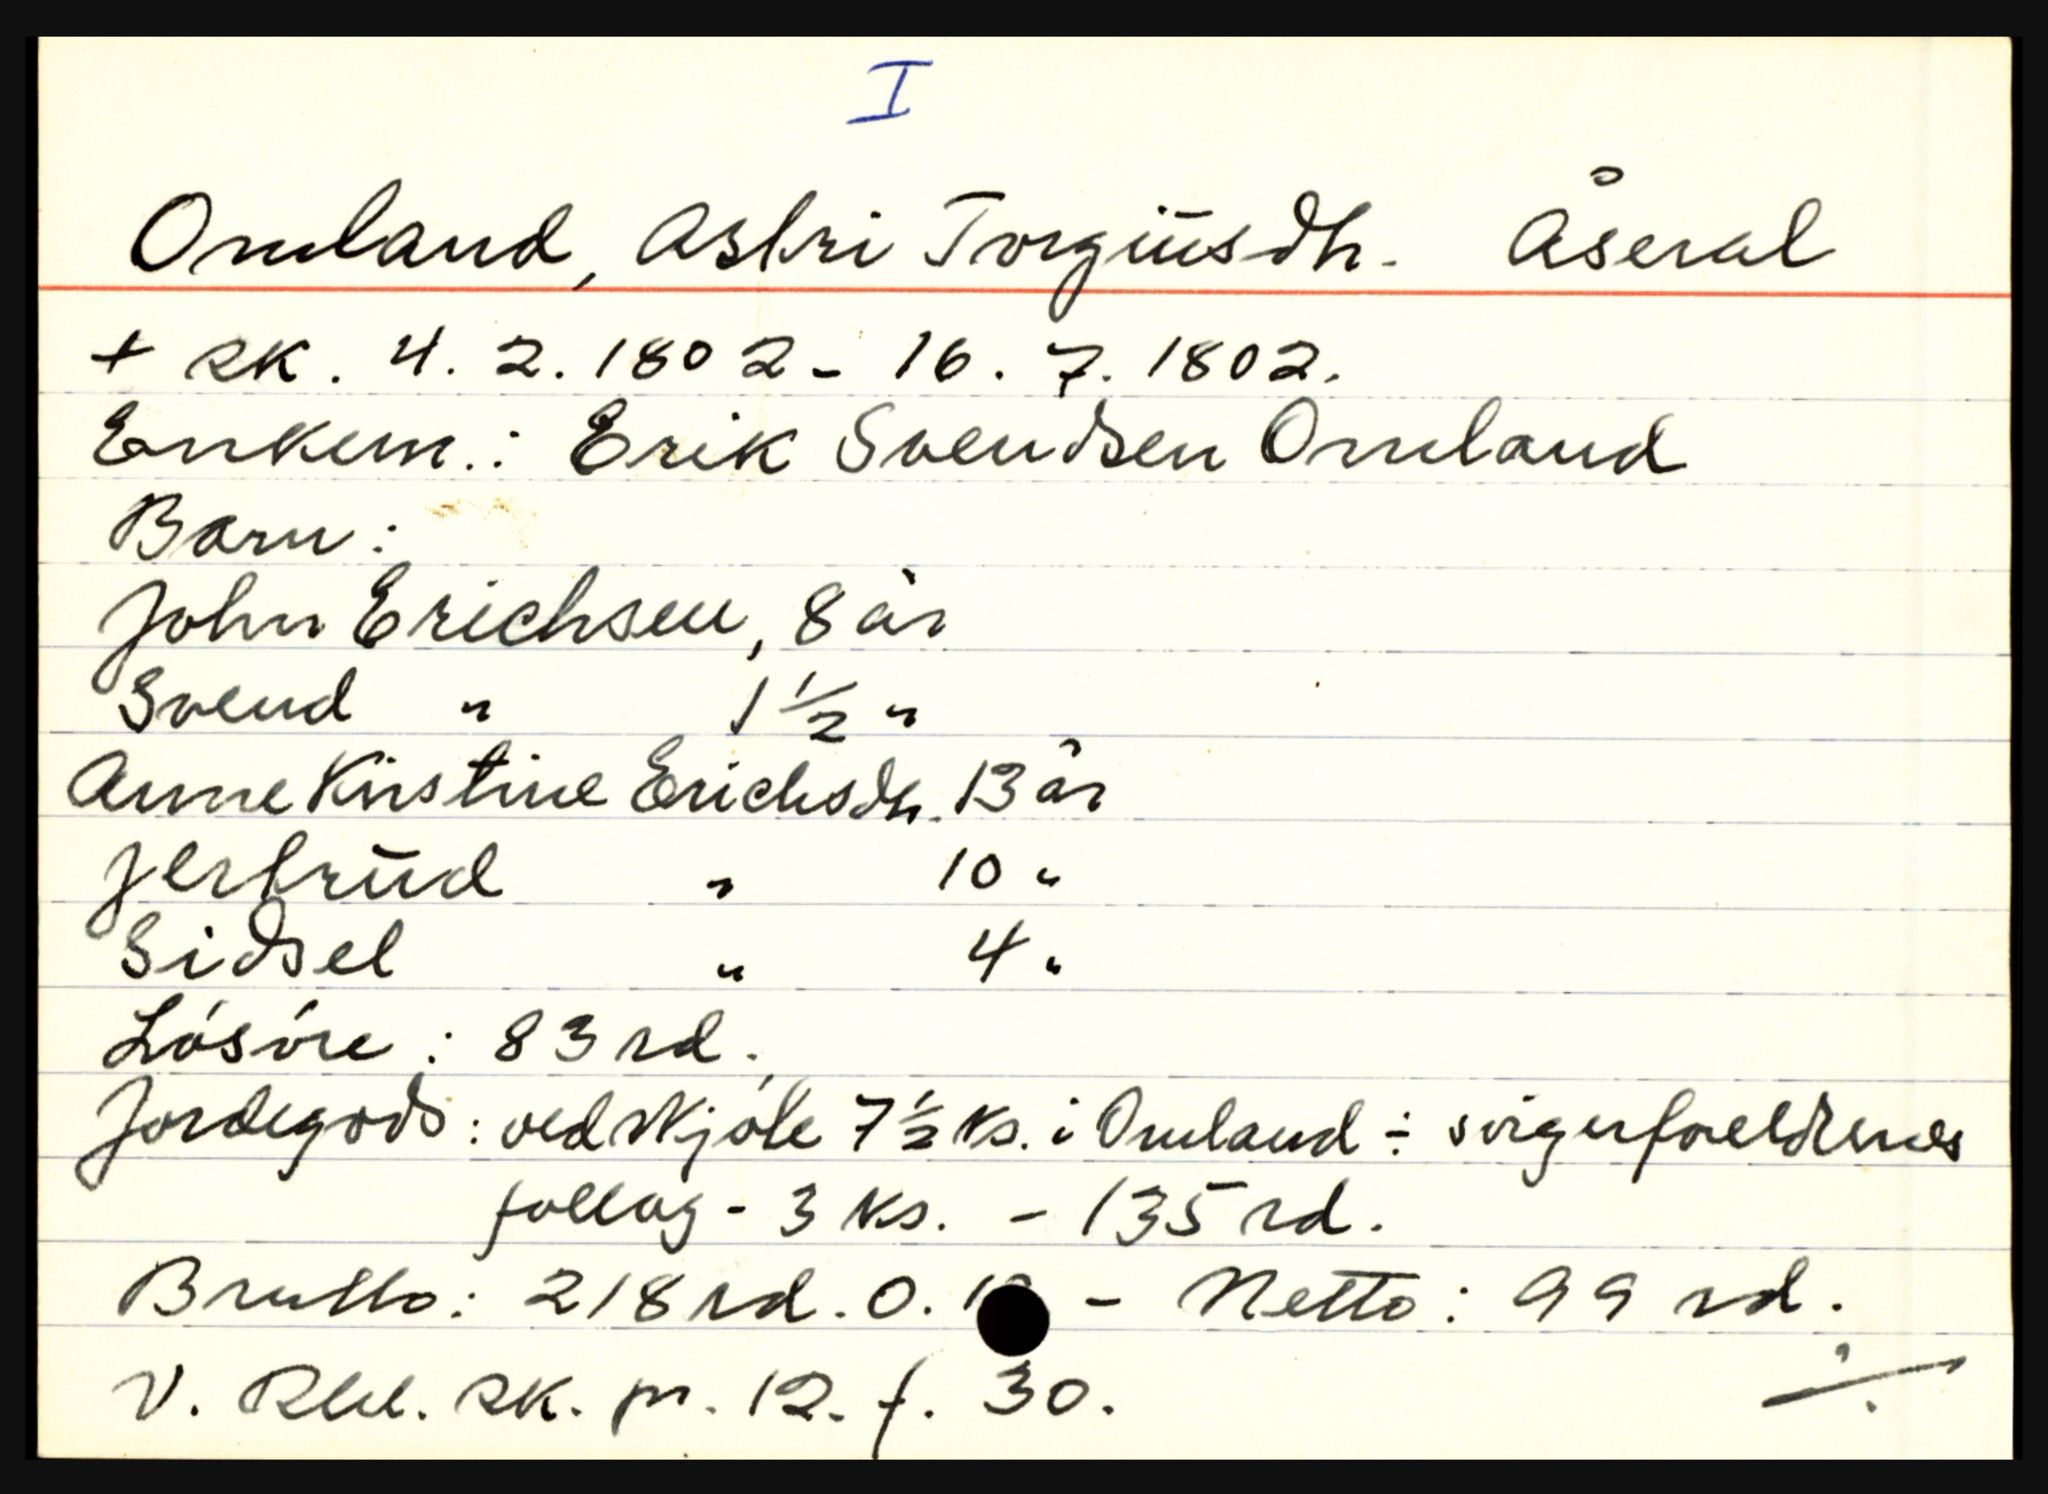 I
Omland, Astri Torgiusdh. Åseral
+ sk. 4. 2. 1802 - 16. 7. 1802.
Enkem.: Erik Svendsen Omland
Barn:
John Erichsen, 8 år
Svend " 1 1/2 "
Anne Kirstine Erichsdh. 13 år
Jertrud " 10 "
Sidsel " 4 "
Lösöre: 83 rd.
Jordegods: ved skjöte 7 1/2 ks. i Omland ÷ svigerforeldrenes
follog - 3 ks. - 135 rd.
Brutto: 218 rd. 0. - Netto: 99 rd.
V. Rbl. sk. pr. 12. f. 30.
·/.